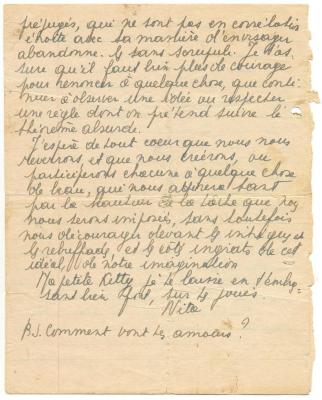 préjugés, qui ne sont pas en corrélation
étroite avec sa manière d'envisager
abandonne. le sans scrupule. Je t'as
sure qu'il faut bien plus de courage
pour renoncer à quelque chose, que conti
nuer à observer une idée ou respecter
une règle dont on prétend suivre le
théorème absurde.
J'espère de tout coeur que nous nous
reverrons, et que nous créerons, ou
participerons chacune à quelque chose
de beau, qui nous attirera tant
par la hauteur de la tâche que nous
nous serons imposé, sans toutefois
nous décourager devant les
les rebuffades, et les côtés ingrats de cet
idéal, de notre imagination
Ma petite Ketty, je te laisse en t'embras-
sant bien fort, sur les joues.
Nita
P.S. Comment vont tes amours?